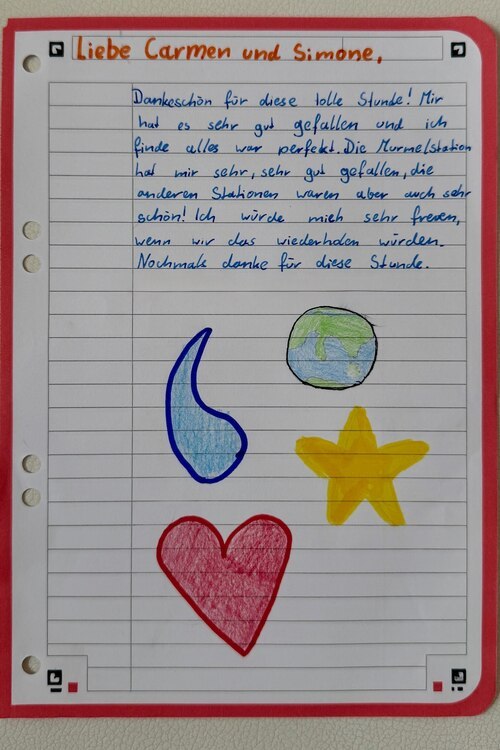 Liebe Carmen und Simone,
Dankeschön für diese tolle Stunde! Mir
hat es sehr gut gefallen und ich
finde alles war perfekt. Die Murmelstation
hat mir sehr, sehr gut gefallen, die
anderen Stationen waren aber auch sehr
schön! Ich würde mich sehr freuen,
wenn wir das wiederholen würden.
Nochmals danke für diese Stunde.